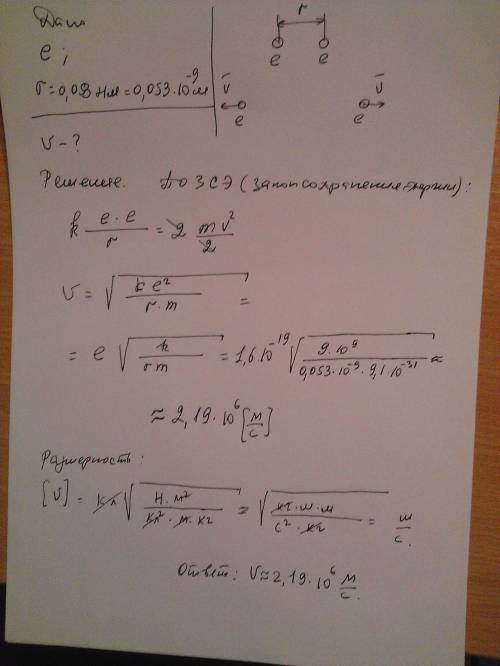 Дано
e;
r = 0,053 нм = 0,053·10⁻⁹ м
v - ?
r
e e
v̄ v̄
e e
Решение. По ЗСЭ (закон сохранения энергии):
k e·e/r = 2 mv²/2
v = √(ke²/(r·m)) =
= e √(k/(rm)) = 1,6·10⁻¹⁹ √(9·10⁹/(0,053·10⁻⁹·9,1·10⁻³¹)) ≈
≈ 2,19·10⁶ [м/с]
Размерность:
[v] = Кл √(Н·м²/(Кл²·м·кг)) = √(кг·м·м/(с²·кг)) = м/с.
Ответ: v ≈ 2,19·10⁶ м/с.